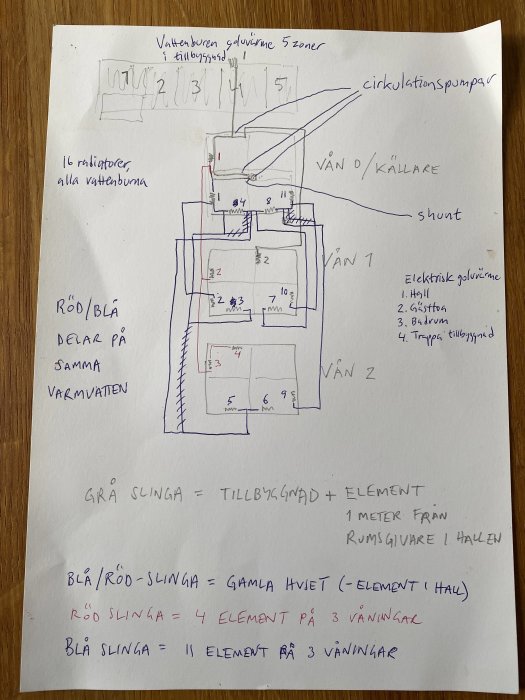 Vattenburen golvvärme 5 zoner
i tillbyggnad
1 2 3 4 5
cirkulationspumpar
16 radiatorer,
alla vattenburna
VÅN 0/KÄLLARE
1
1 4 8 11
shunt
2
VÅN 1
2
2 3 7 10
Elektrisk golvvärme
1. Hall
2. Gästtoa
3. Badrum
4. Trappa tillbyggnad
RÖD/BLÅ
DELAR PÅ
SAMMA
VARMVATTEN
4
3
VÅN 2
5 6 9
GRÅ SLINGA = TILLBYGGNAD + ELEMENT
1 METER FRÅN
RUMSGIVARE I HALLEN
BLÅ/RÖD-SLINGA = GAMLA HUSET (-ELEMENT I HALL)
RÖD SLINGA = 4 ELEMENT PÅ 3 VÅNINGAR
BLÅ SLINGA = 11 ELEMENT PÅ 3 VÅNINGAR